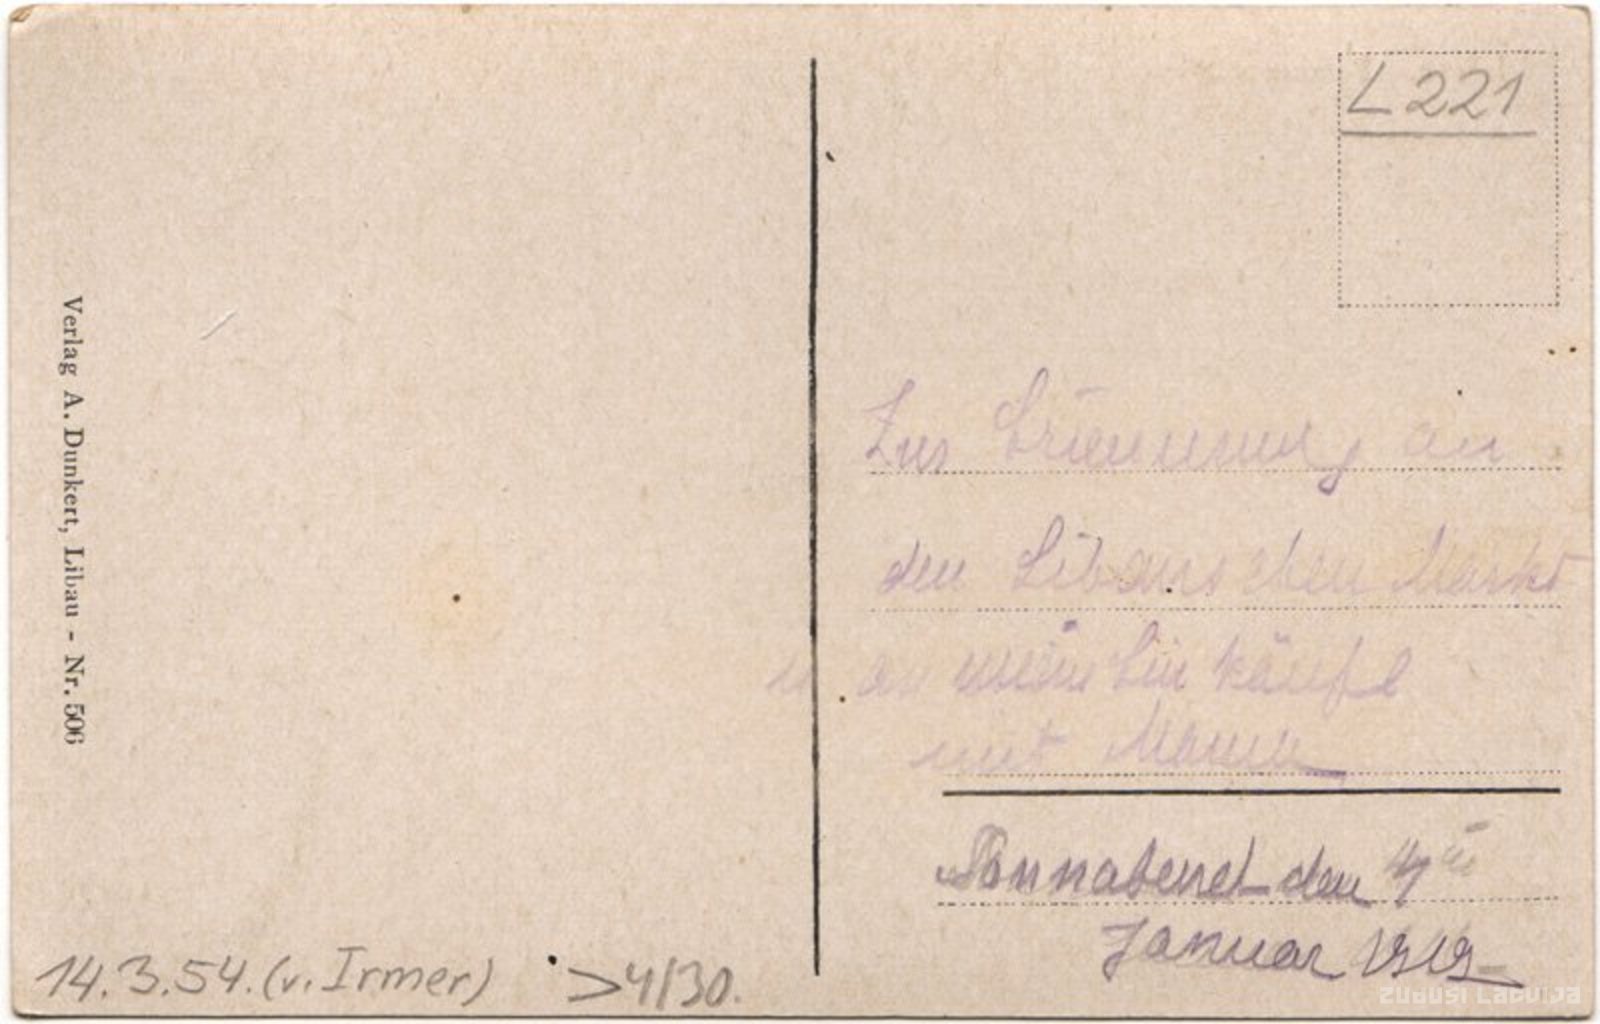 Verlag A. Dunkert, Libau - Nr. 506
L 221
Zur Erinnerung an
den Libauschen Markt
u an Einkäufe
mit Mama
Sonnabend den 4
Januar 1919
14.3.54. (v. Irmer) >4/30.
ZUDUSI LATVIJA